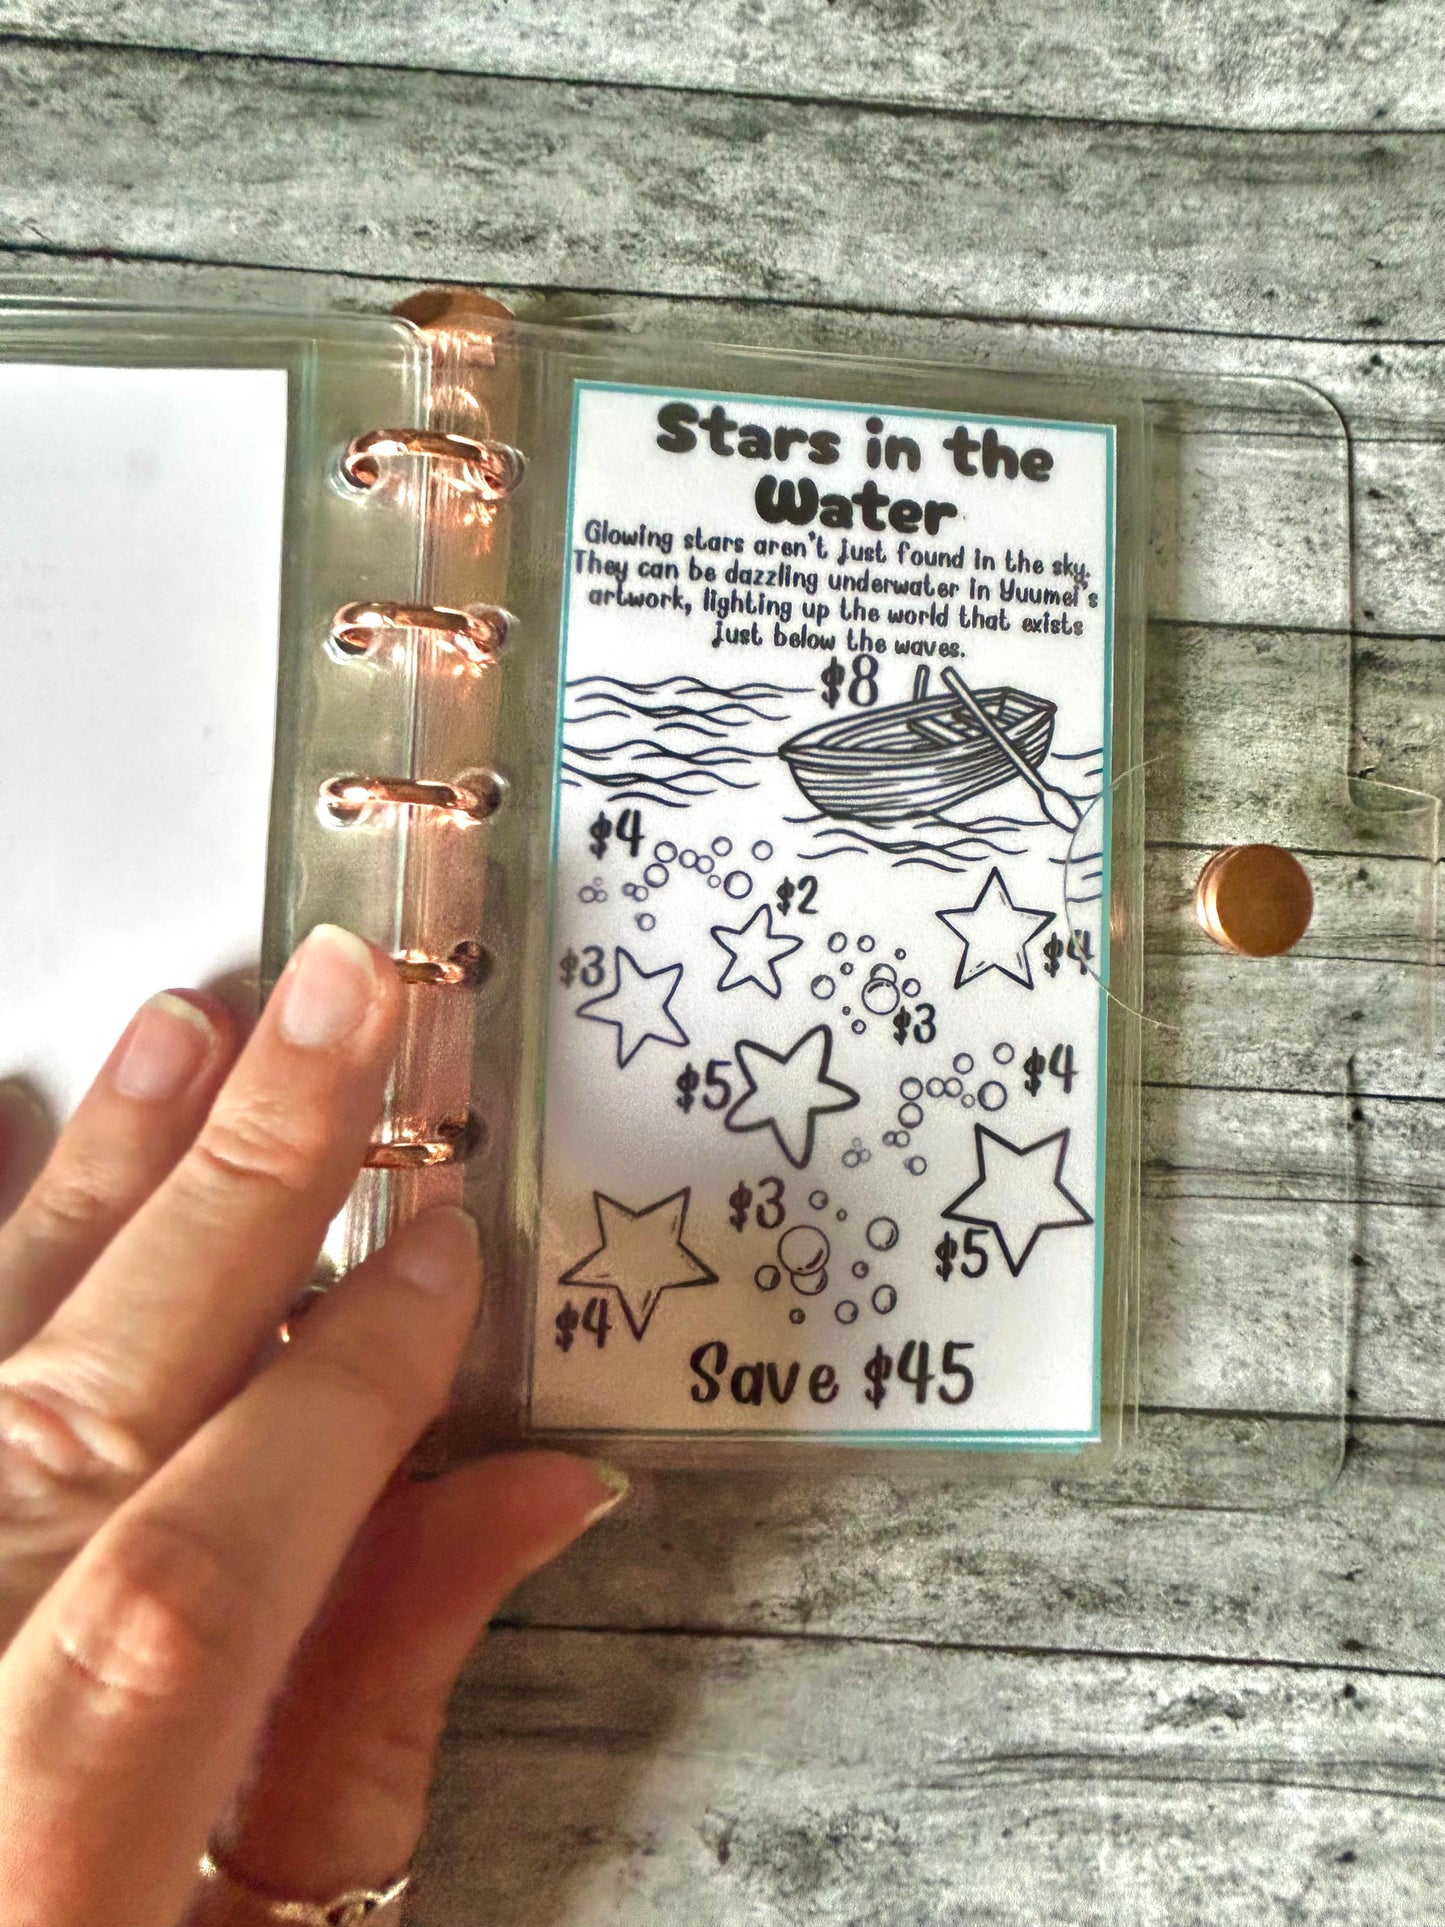 Stars in the
Water
Glowing stars aren't just found in the sky.
They can be dazzling underwater in Yuumei's
artwork, lighting up the world that exists
just below the waves.
$8
$4
$2
$4
$3
$3
$5
$4
$3
$5
$4
Save $45